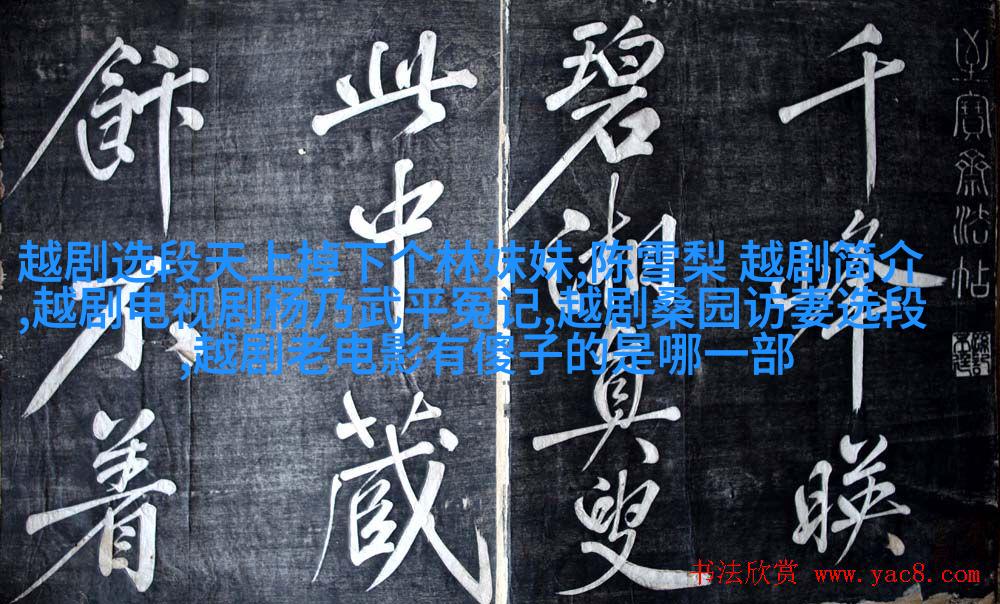 至寶齋法帖
千峯暎
碧湘真叟
此中藏
飰不着
越剧选段天上掉下个林妹妹,陈雪梨 越剧简介
,越剧电视剧杨乃武平冤记,越剧桑园访妻选段
,越剧老电影有傻子的是哪一部
书法欣赏 www.yac8.com